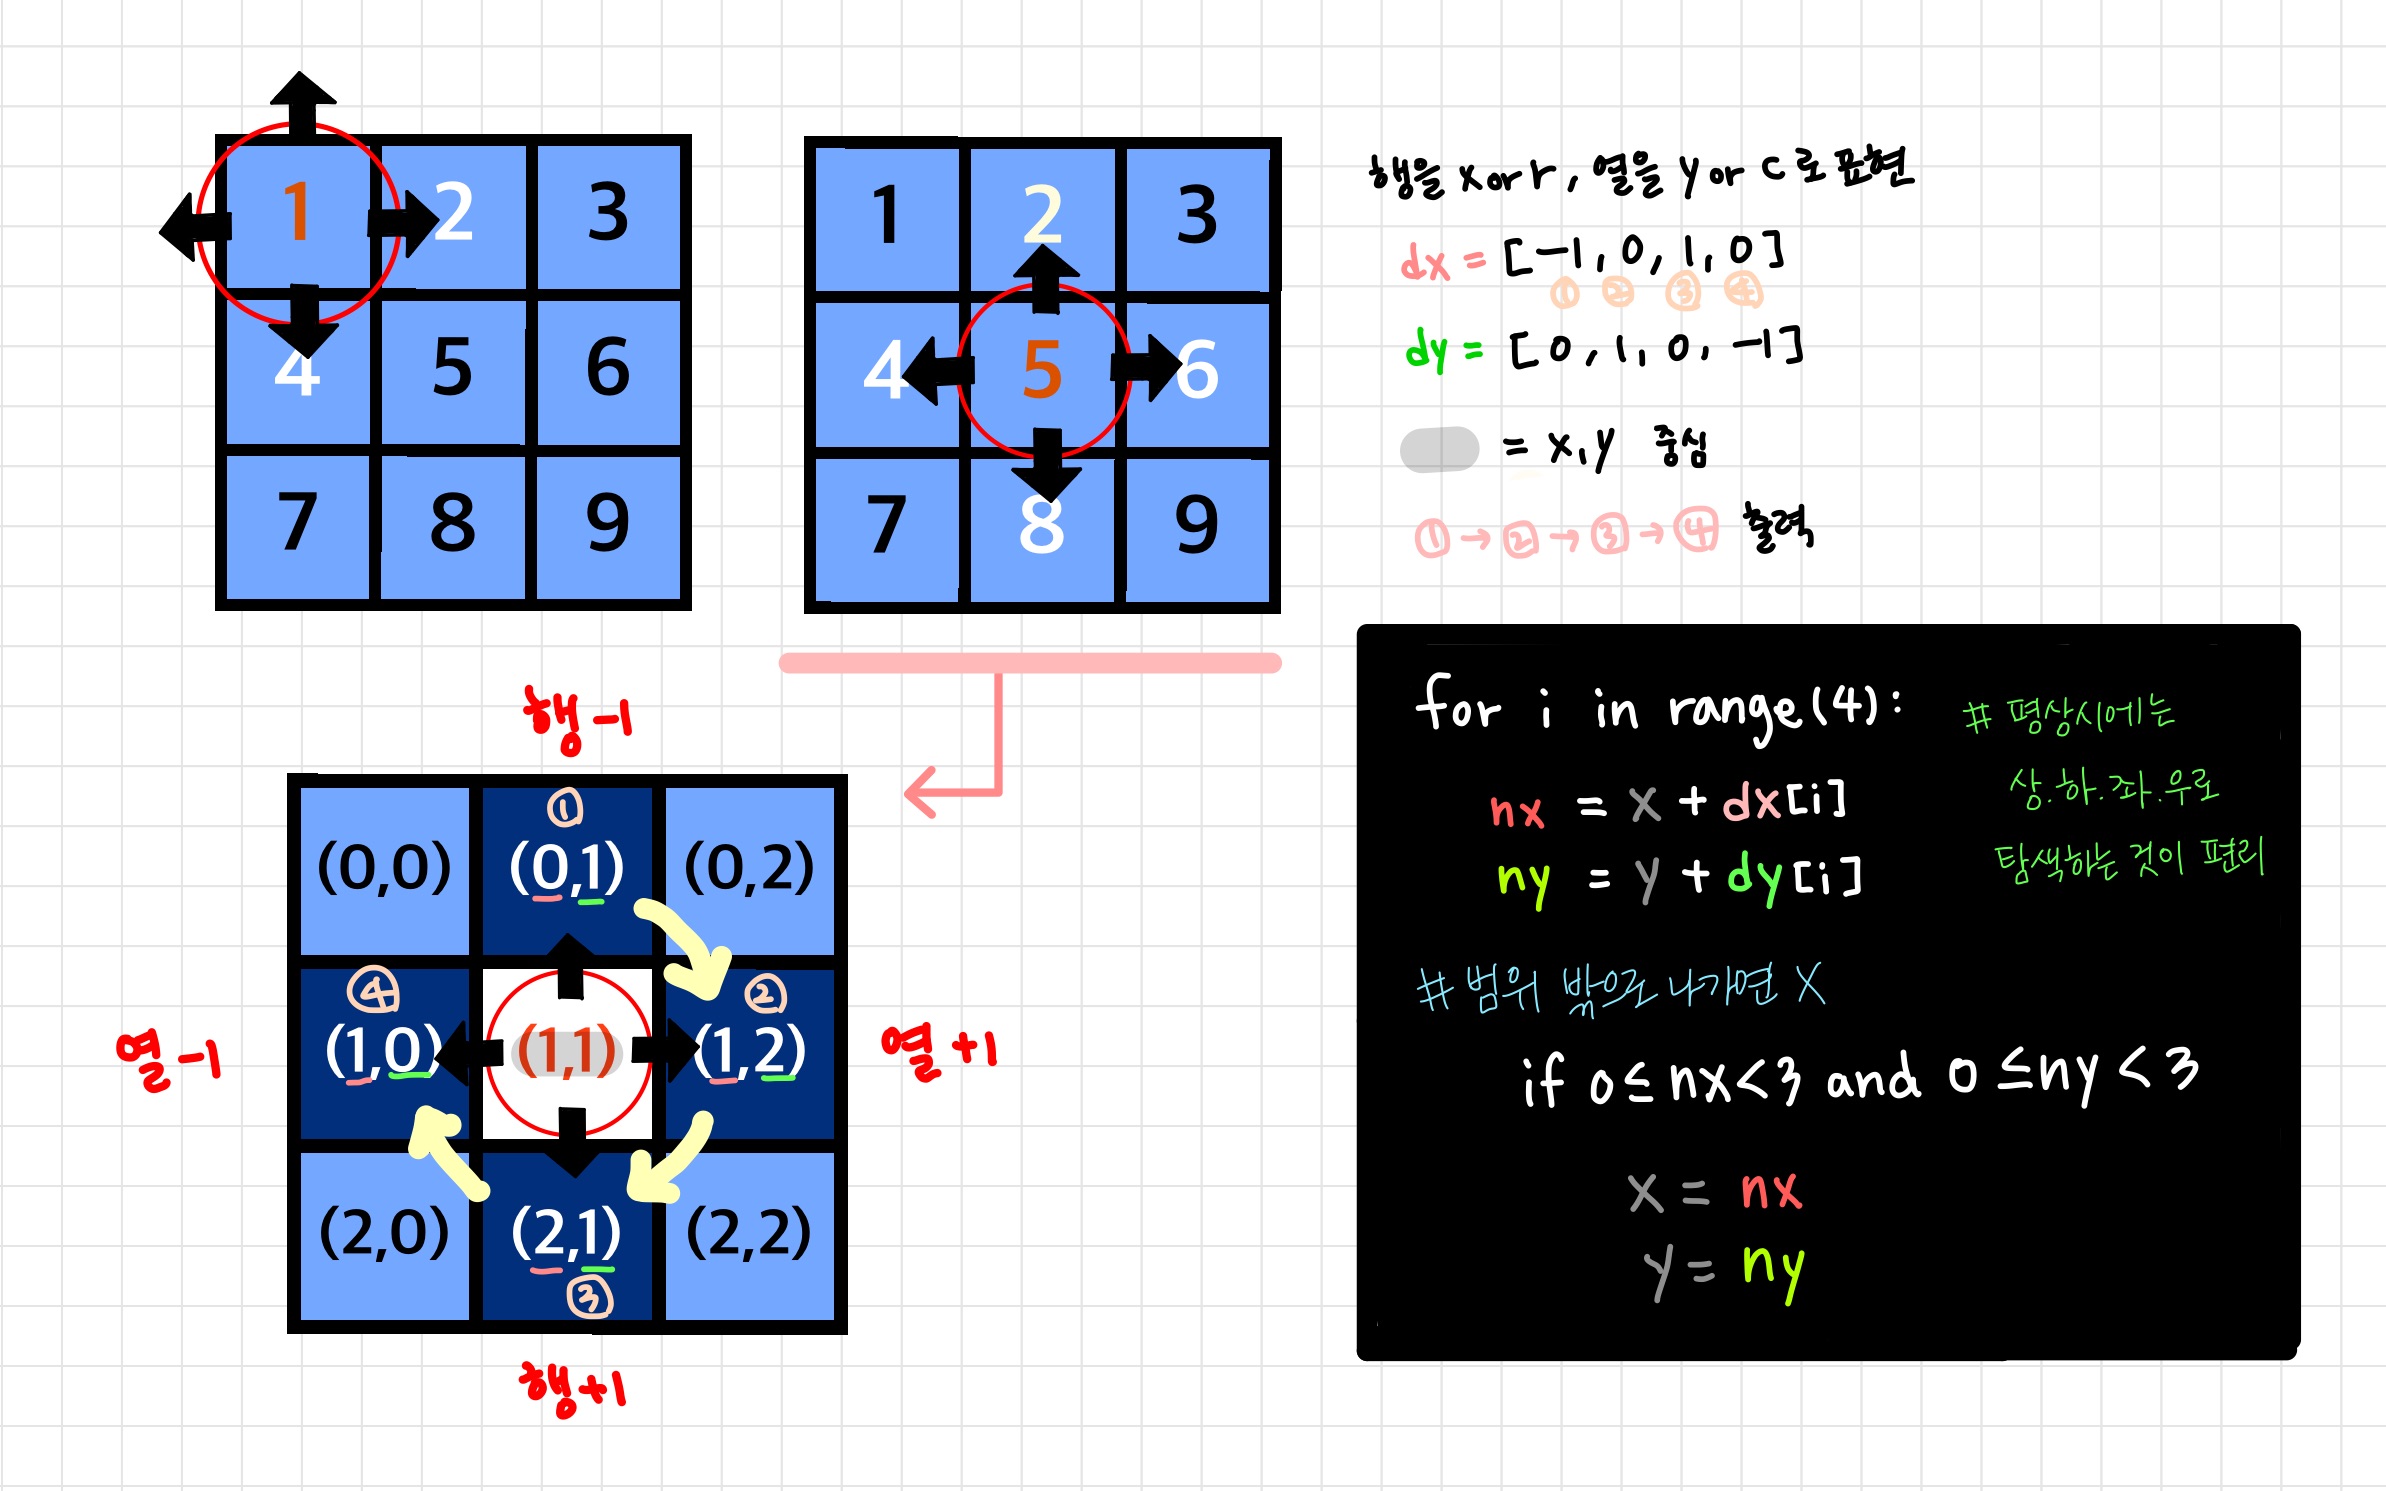 1 2 3
4 5 6
7 8 9
1 2 3
4 5 6
7 8 9
행을 x or r, 열을 y or c로 표현
dx = [-1, 0, 1, 0]
① ② ③ ④
dy = [0, 1, 0, -1]
= x, y 중심
① → ② → ③ → ④ 출력
행-1
①
(0,0) (0,1) (0,2)
④ ②
열-1 (1,0) (1,1) (1,2) 열+1
(2,0) (2,1) (2,2)
③
행+1
for i in range(4): # 평상시에는
상.하.좌.우로
탐색하는 것이 편리
nx = x + dx[i]
ny = y + dy[i]
# 범위 밖으로 나가면 X
if 0 ≤ nx < 3 and 0 ≤ ny < 3
x = nx
y = ny